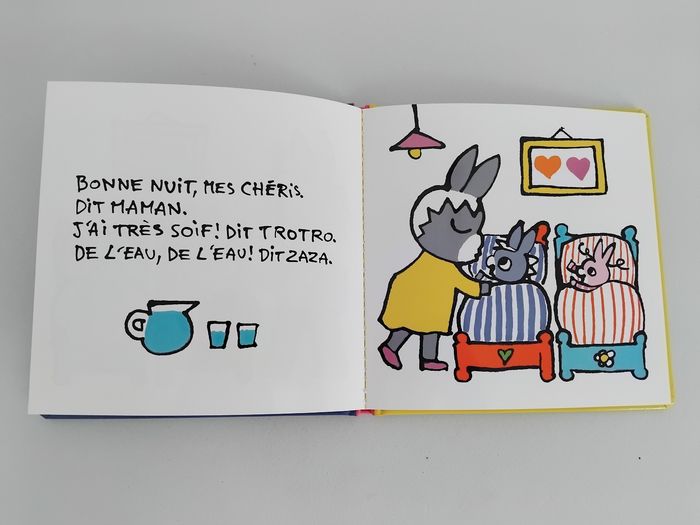 BONNE NUIT, MES CHÉRIS.
DIT MAMAN.
J'AI TRÈS SOIF! DIT TROTRO.
DE L'EAU, DE L'EAU! DIT ZAZA.